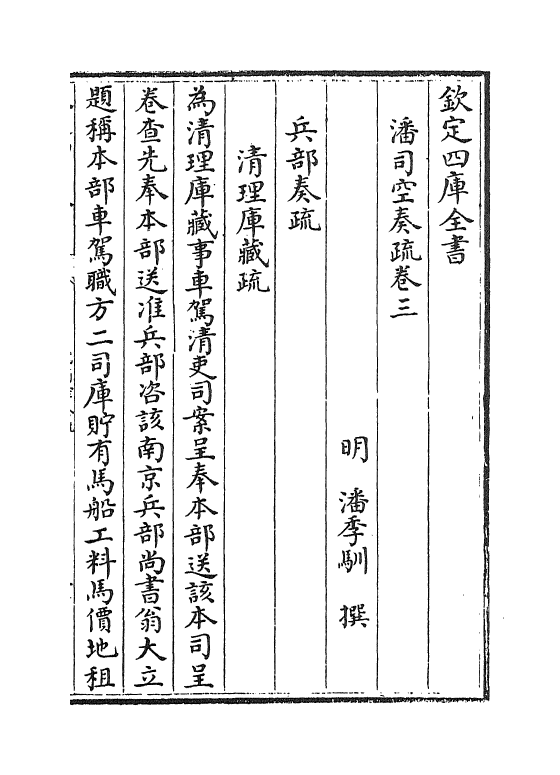 欽定四庫全書
潘司空奏疏卷三
明 潘季馴 撰
兵部奏疏
清理庫藏疏
為清理庫藏事車駕清吏司案呈奉本部送該本司呈
卷查先奉本部送准兵部咨該南京兵部尚書翁大立
題稱本部車駕職方二司庫貯有馬船工料馬價地租